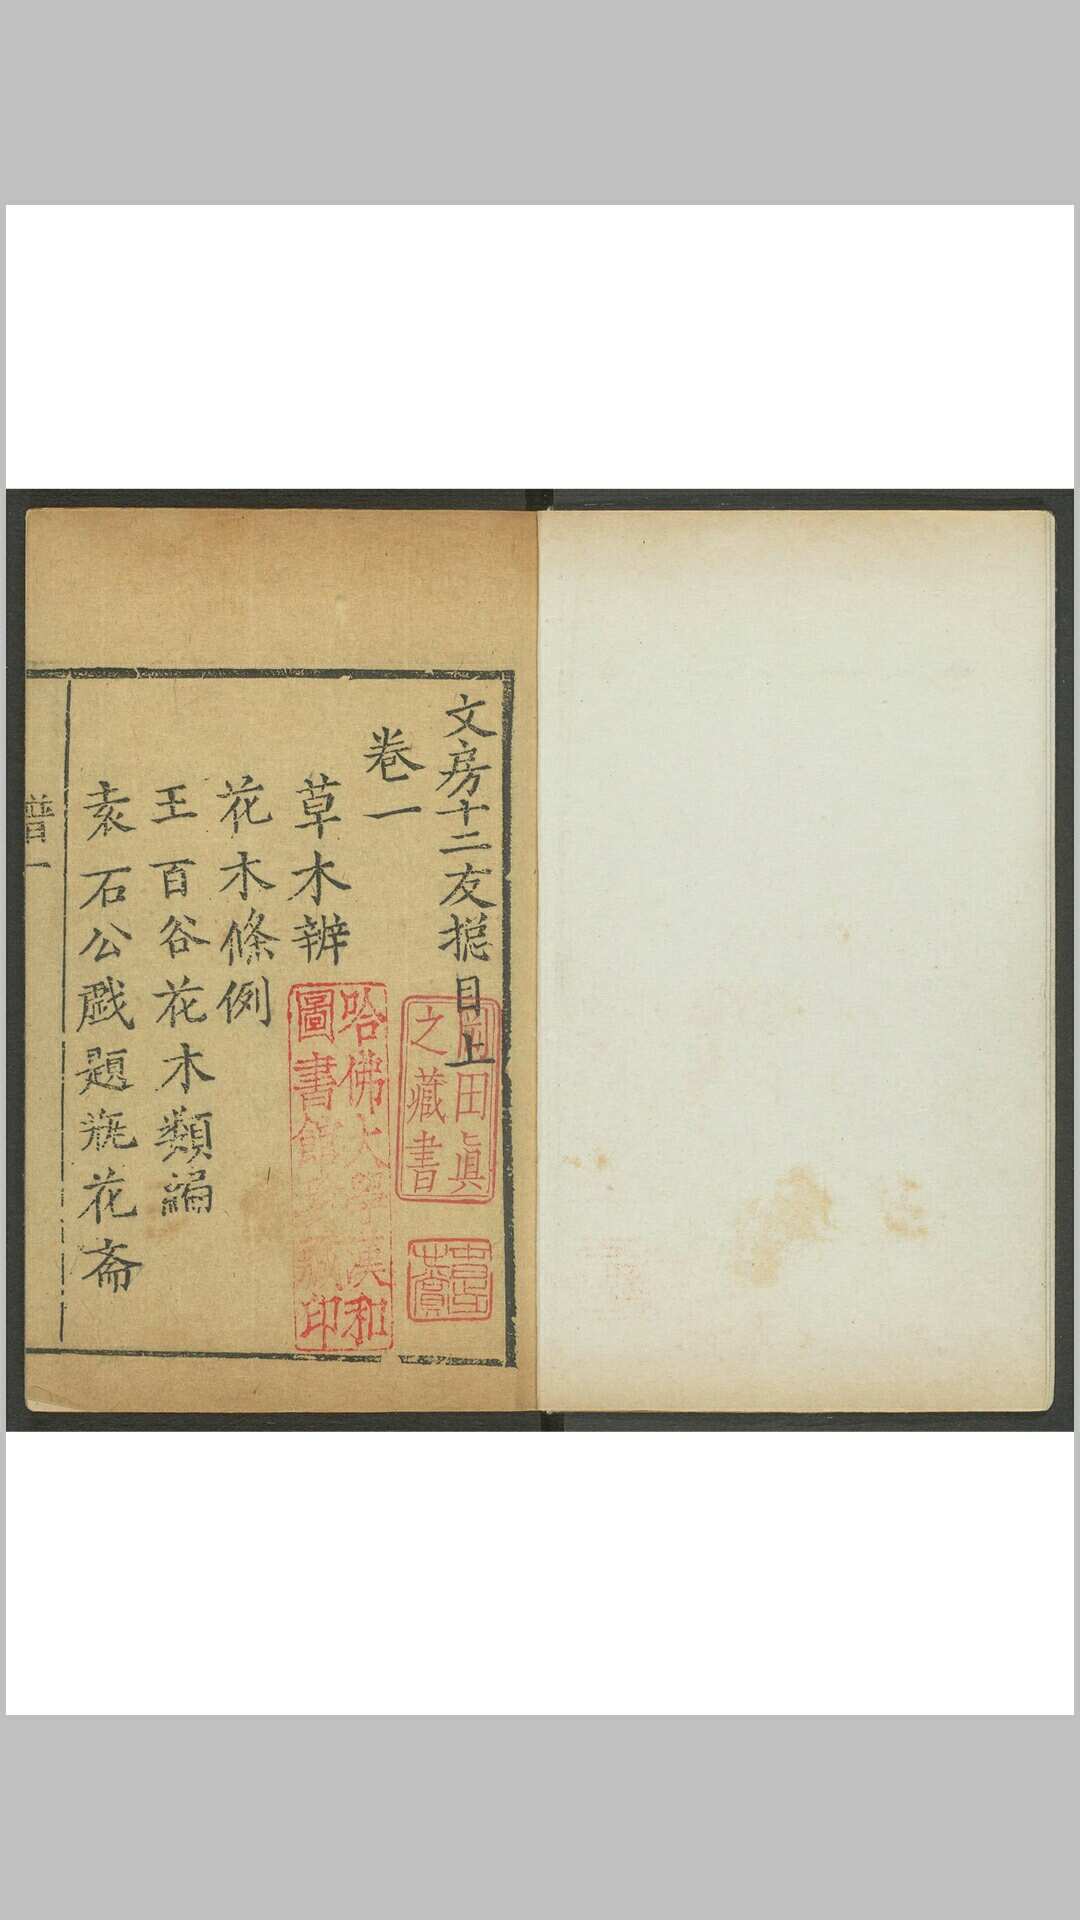 文房十二友摠目上
卷一
草木辨
花木條例
王百谷花木類編
袁石公戲題瓶花斎
譜一
田眞
之藏書
哈佛大學漢和
圖書館珍藏印